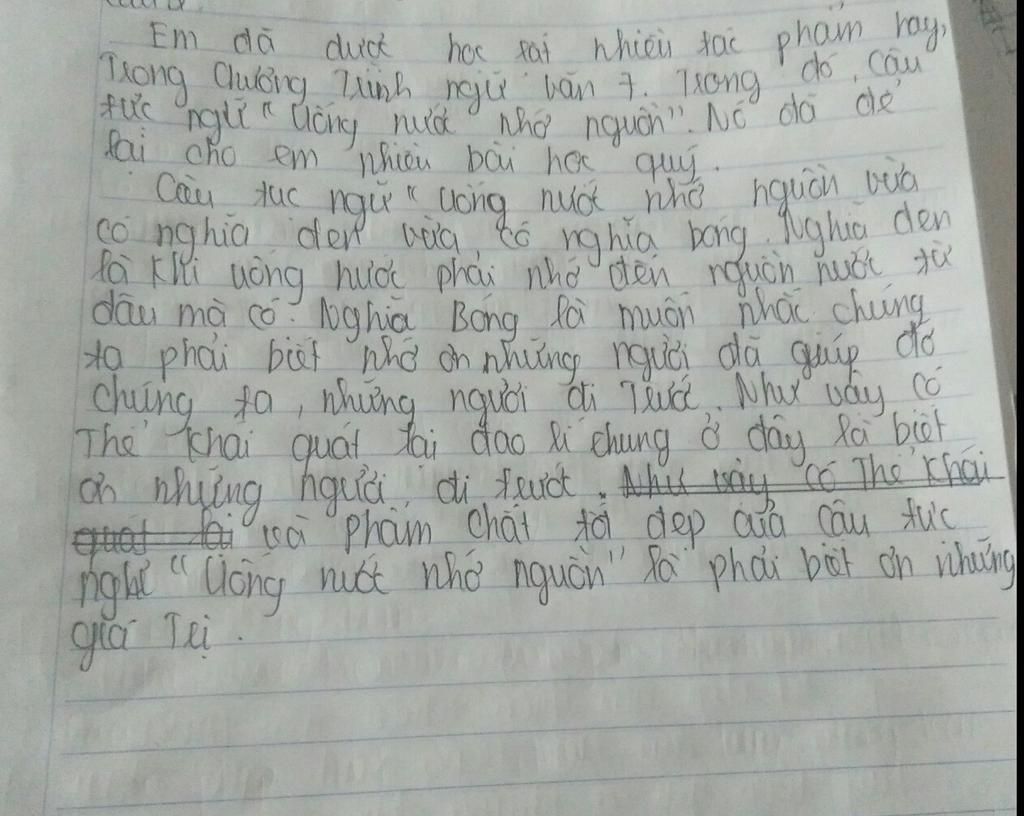 Em đã dược học rất nhiều tác phẩm hay,
Trong Chương Trình ngữ văn 7. Trong đó, câu
tức ngữ "Uống nước nhớ nguồn". Nó đã để
lại cho em nhiều bài học quý.
Câu tục ngữ "Uống nước nhớ nguồn vừa
có nghĩa đen vừa có nghĩa bóng. Nghĩa đen
là Khi uống nước phải nhớ đến nguồn nước từ
đâu mà có. Nghĩa Bóng là muốn nhắc chúng
ta phải biết nhớ ơn những người đã giúp đỡ
chúng ta, những người đi Trước. Như vậy có
Thể khái quát lại đạo lí chung ở đây là biết
ơn những người đi trước. Như vậy có Thể Khái
quát lại và phẩm chất tốt đẹp của câu tức
nghữ "Uống nước nhớ nguồn" là phải biết ơn những
giá Trị.